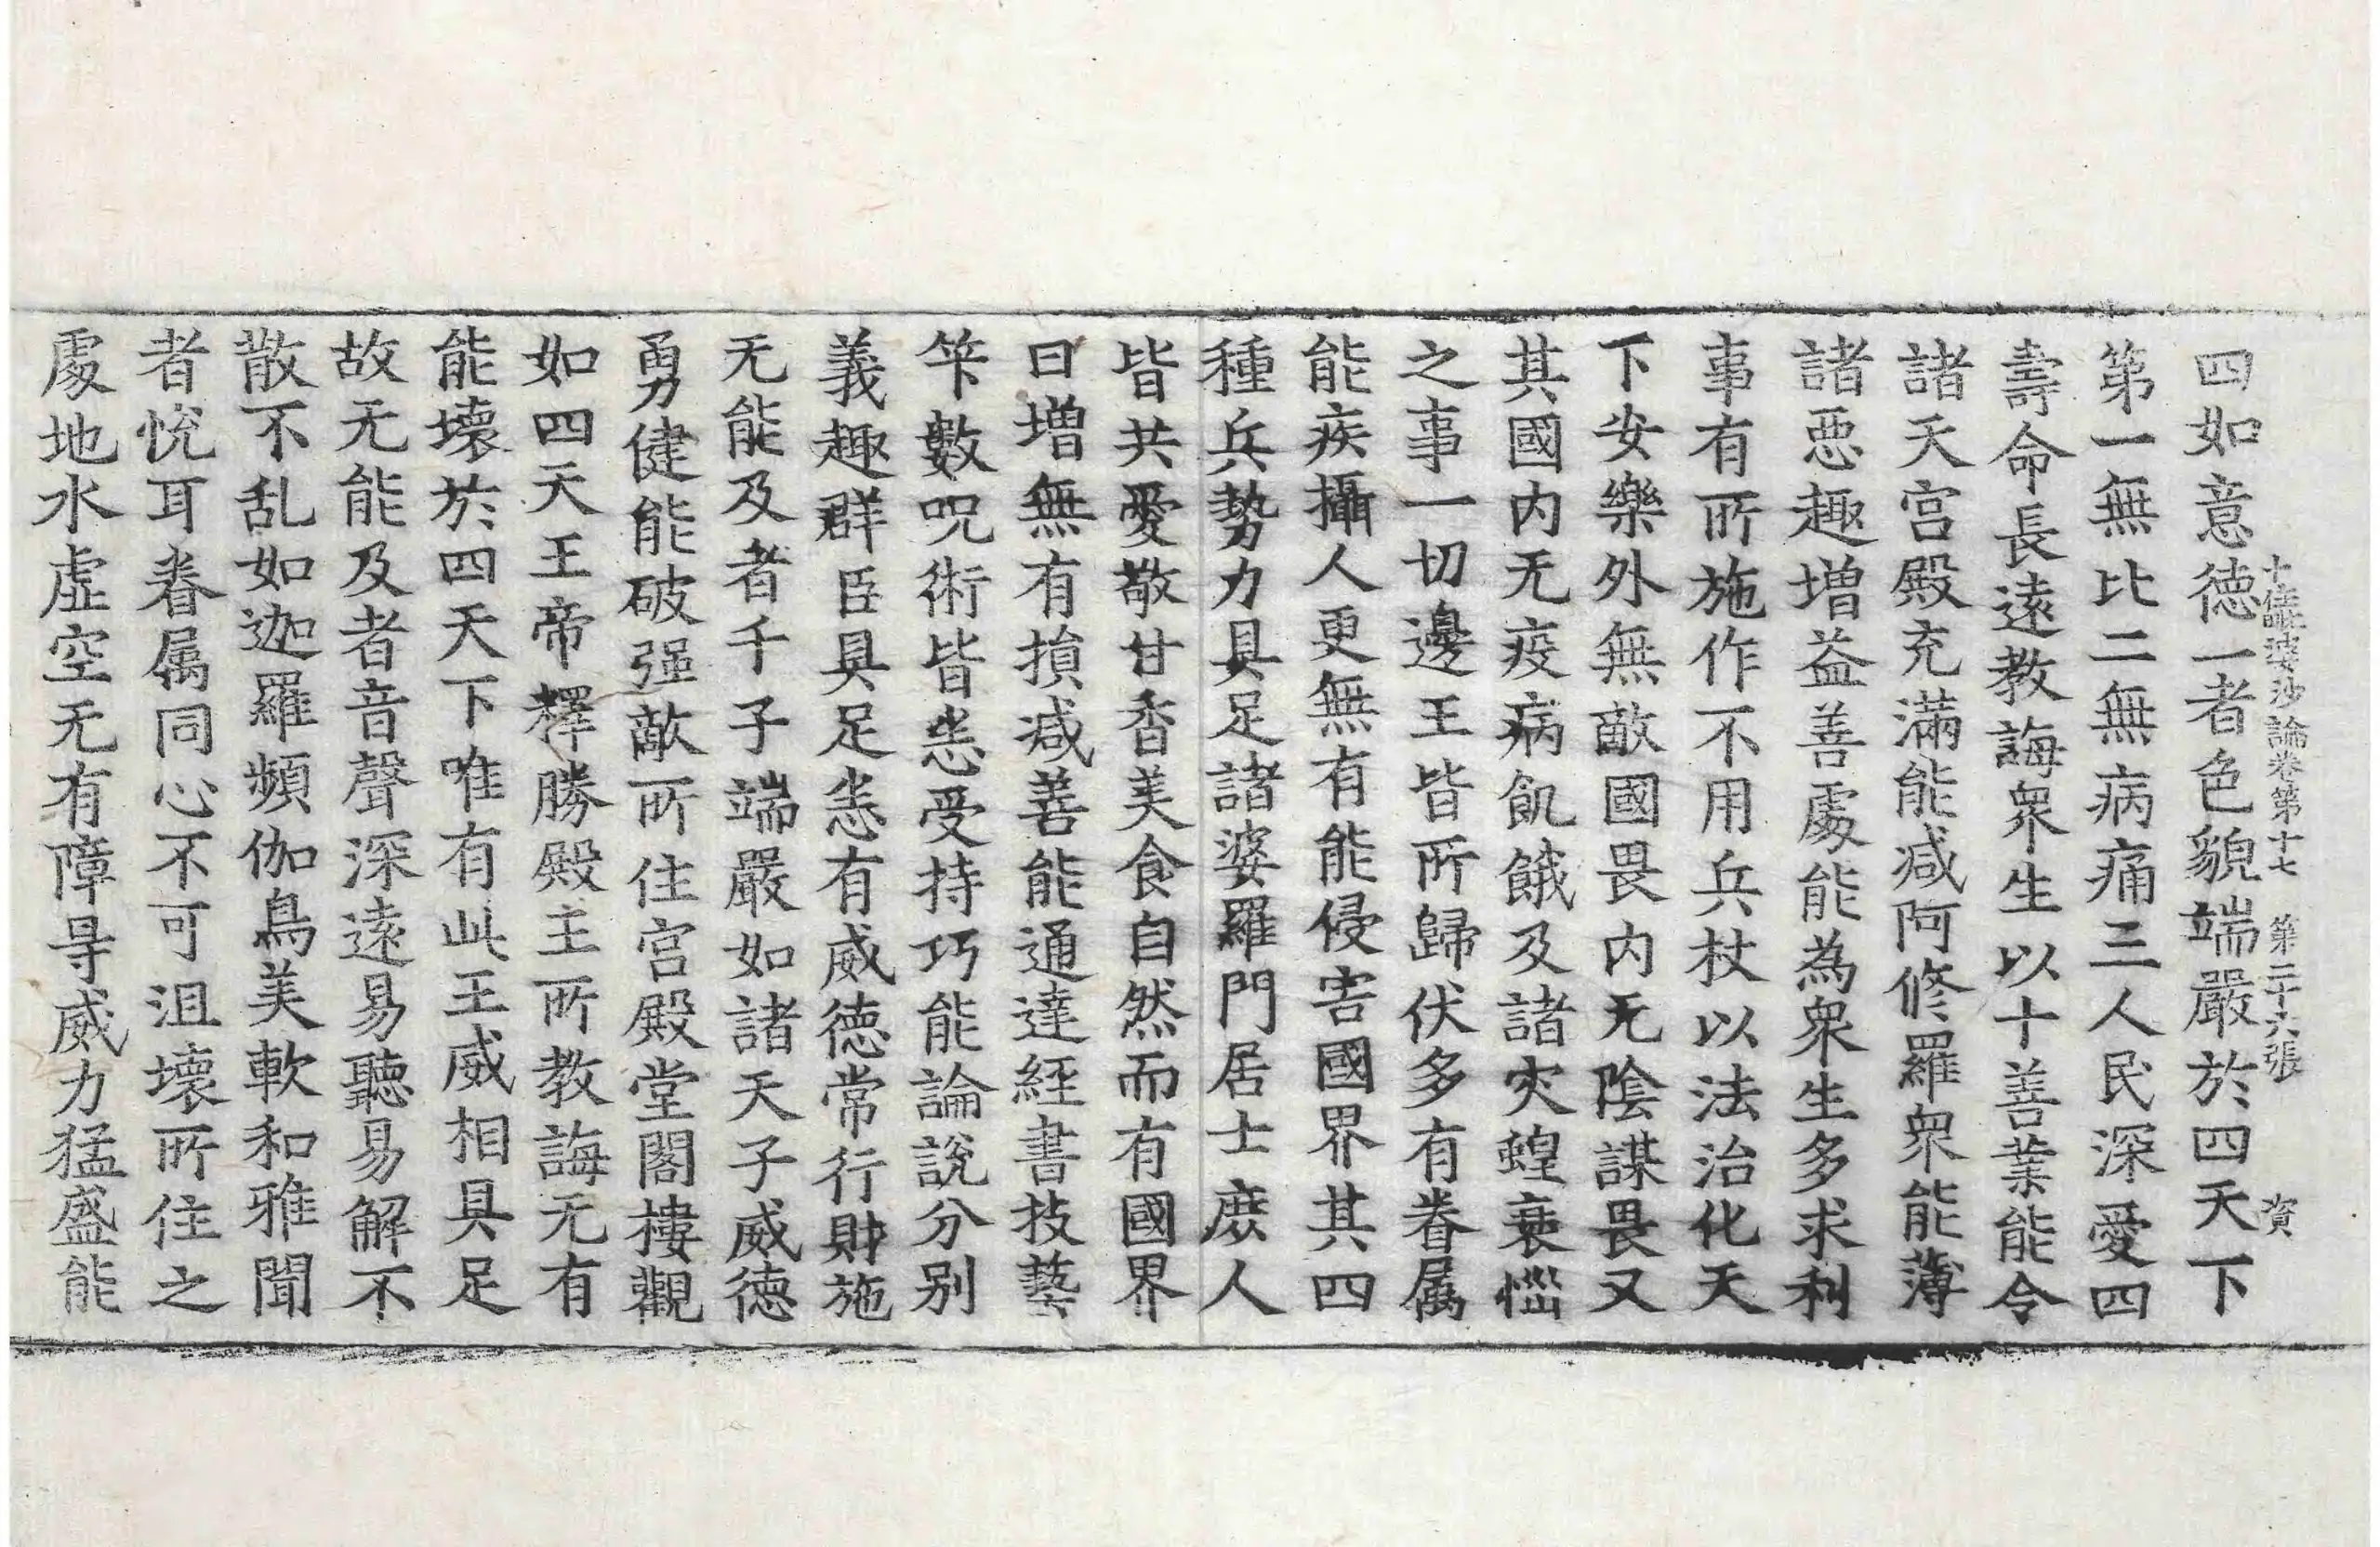 十住毗婆沙論卷第十七 第二十六張 資
四如意德一者色貌端嚴於四天下
第一無比二無病痛三人民深愛四
壽命長遠教誨衆生以十善業能令
諸天宮殿充滿能减阿修羅衆能薄
諸惡趣增益善處能為衆生多求利
事有所施作不用兵杖以法治化天
下安樂外無敵國畏內无陰謀畏又
其國內无疫病飢餓及諸灾蝗衰惱
之事一切邊王皆所歸伏多有眷属
能疾攝人更無有能侵害國界其四
種兵勢力具足諸婆羅門居士庶人
皆共愛敬甘香美食自然而有國界
日增無有損减善能通達經書技藝
笇數呪術皆悉受持巧能論說分别
義趣群臣具足悉有威德常行財施
无能及者千子端嚴如諸天子威德
勇健能破强敵所住宮殿堂閣樓觀
如四天王帝釋勝殿主所教誨无有
能壞於四天下唯有此王威相具足
故无能及者音聲深遠易聽易解不
散不乱如迦羅頻伽鳥美軟和雅聞
者悅耳眷属同心不可沮壞所住之
處地水虛空无有障㝵威力猛盛能